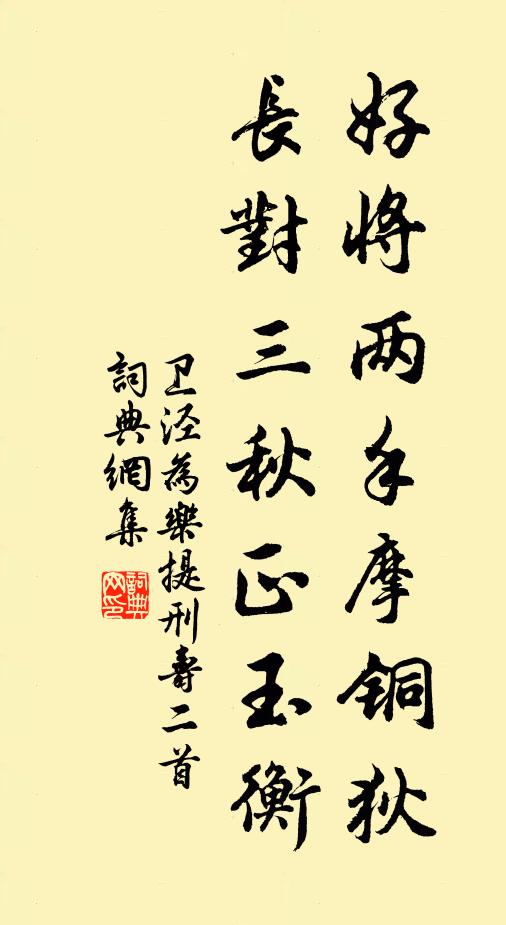 好將两手摩銅狄
長對三秋正玉衡
卫泾為樂提刑壽二首
詞典網集
詞典網印